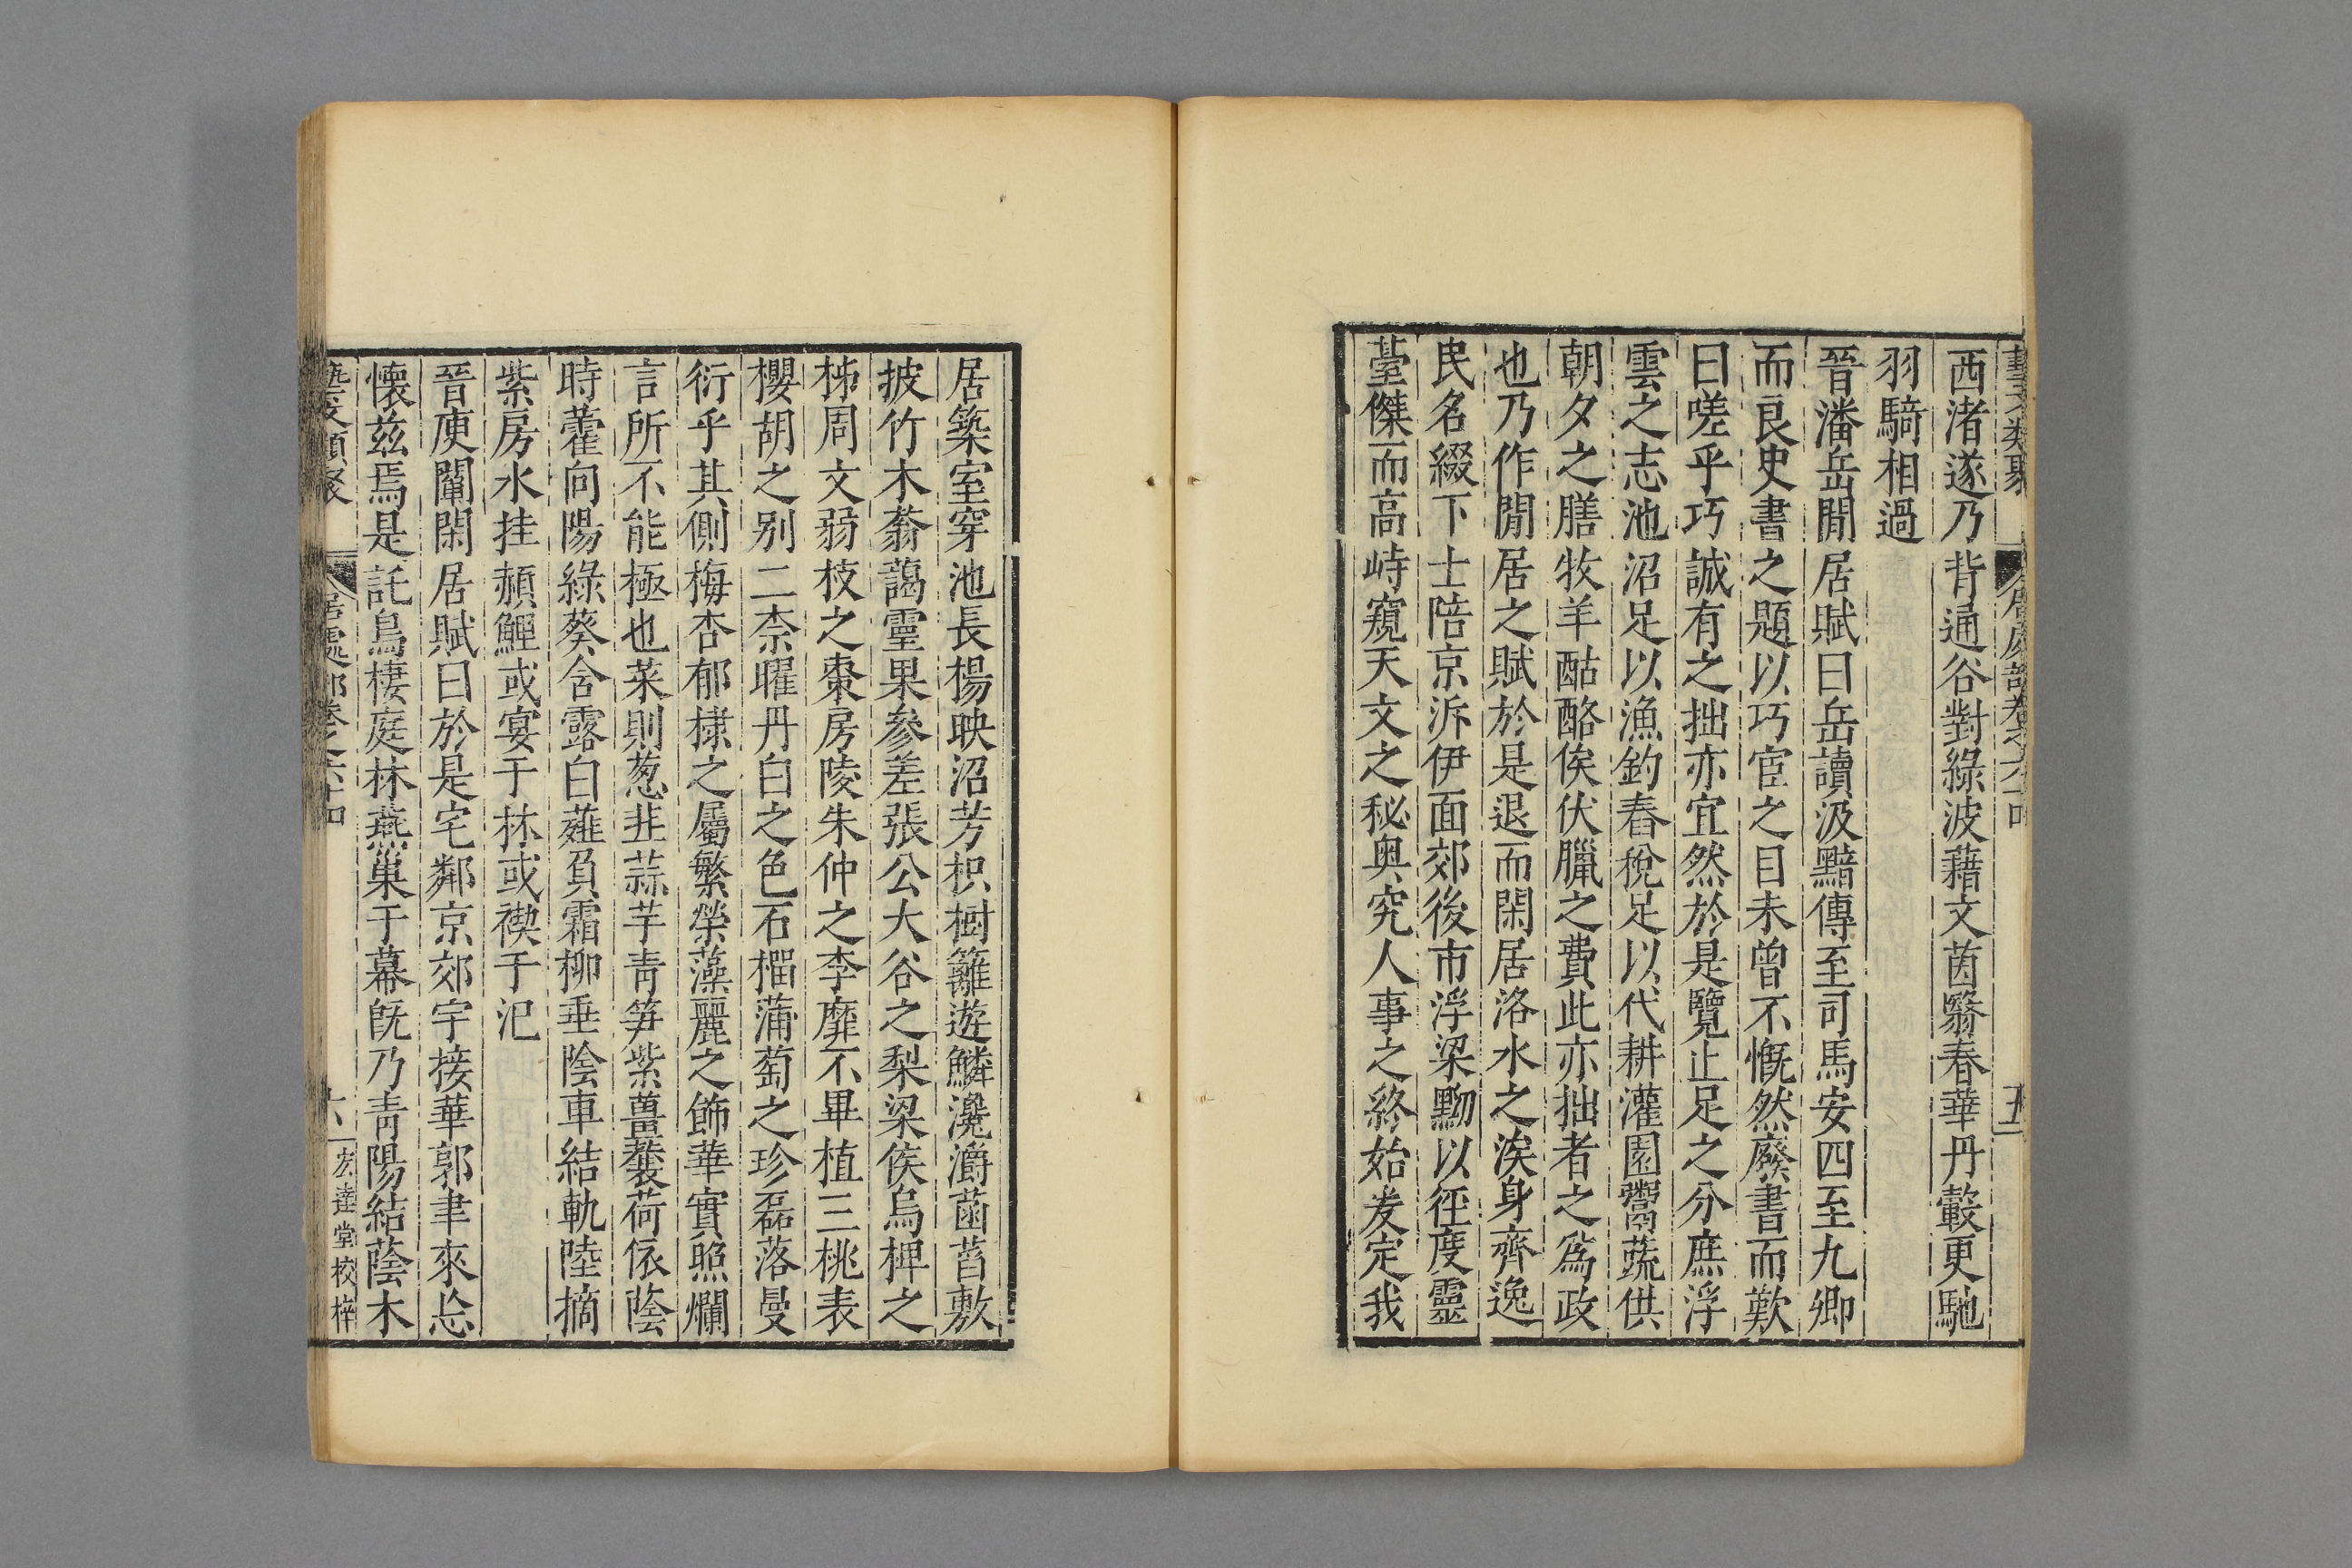 藝文類聚 居處部卷之六十四 五
西渚遂乃背通谷對綠波藉文茵翳春華丹轂更馳
羽騎相過
晉潘岳閒居賦曰岳讀汲黯傳至司馬安四至九卿
而良史書之題以巧宦之目未曾不慨然廢書而歎
曰嗟乎巧誠有之拙亦宜然於是覽止足之分庶浮
雲之志池沼足以漁釣舂稅足以代耕灌園鬻蔬供
朝夕之膳牧羊酤酪俟伏臘之費此亦拙者之爲政
也乃作閒居之賦於是退而閑居洛水之涘身齊逸
民名綴下士陪京泝伊面郊後市浮梁黝以徑度靈
臺傑而高峙窺天文之秘奥究人事之終始爰定我
居築室穿池長楊映沼芳枳樹籬遊鱗瀺灂菡萏敷
披竹木蓊藹靈果參差張公大谷之梨梁侯烏椑之
柹周文弱枝之棗房陵朱仲之李靡不畢植三桃表
櫻胡之别二柰曜丹白之色石榴蒲萄之珍磊落曼
衍乎其側梅杏郁棣之屬繁榮藻麗之飾華實照爛
言所不能極也菜則葱韭蒜芋青笋紫薑蘘荷依陰
時藿向陽綠葵含露白薤負霜柳垂陰車結軌陸摘
紫房水挂赬鯉或宴于林或禊于汜
晉庾闡閑居賦曰於是宅鄰京郊宇接華郭聿來忩
懷兹焉是託鳥棲庭林燕巢于幕旣乃青陽結蔭木
藝文類聚 居處部卷之六十四 六 宏達堂校梓